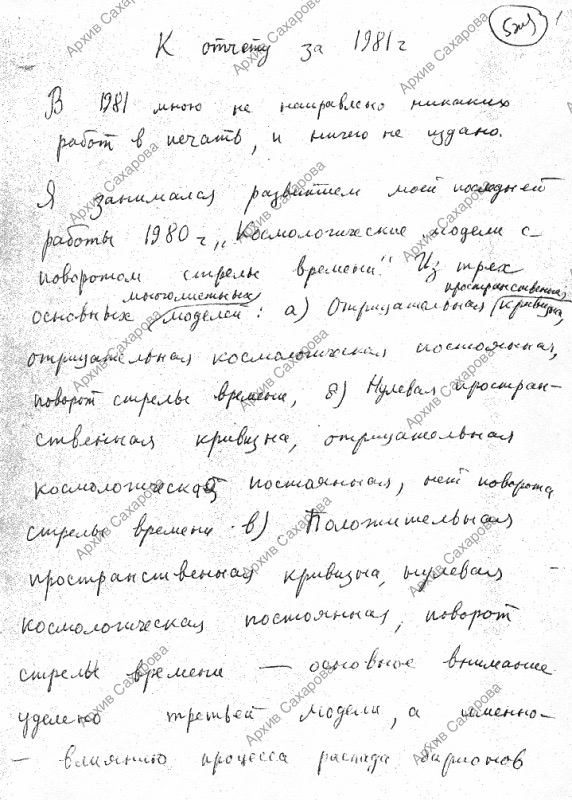 К отчету за 1981 г
В 1981 мною не направлено никаких
работ в печать, и ничего не издано.
Я занимался развитием моей последней
работы 1980 г „Космологические модели с
поворотом стрелы времени“. Из трех
основных многолистных моделей: а) Отрицательная пространственная кривизна,
отрицательная космологическая постоянная,
поворот стрелы времени, б) Нулевая простран-
ственная кривизна, отрицательная
космологическая постоянная, нет поворота
стрелы времени. в) Положительная
пространственная кривизна, нулевая
космологическая постоянная, поворот
стрелы времени — основное внимание
уделено третьей модели, а именно —
— влиянию процесса распада барионов
Архив Сахарова